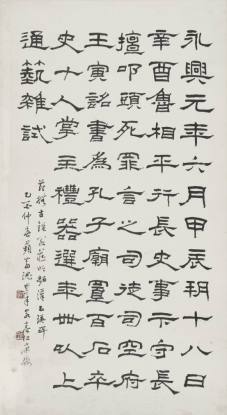 永興元年六月甲辰朔十八日
辛酉魯相平行長史事卞守長
擅叩頭死罪言之司徒司空府
壬寅詔書為孔子廟置百石卒
史十人掌主禮器選年卌以上
通藝雜試